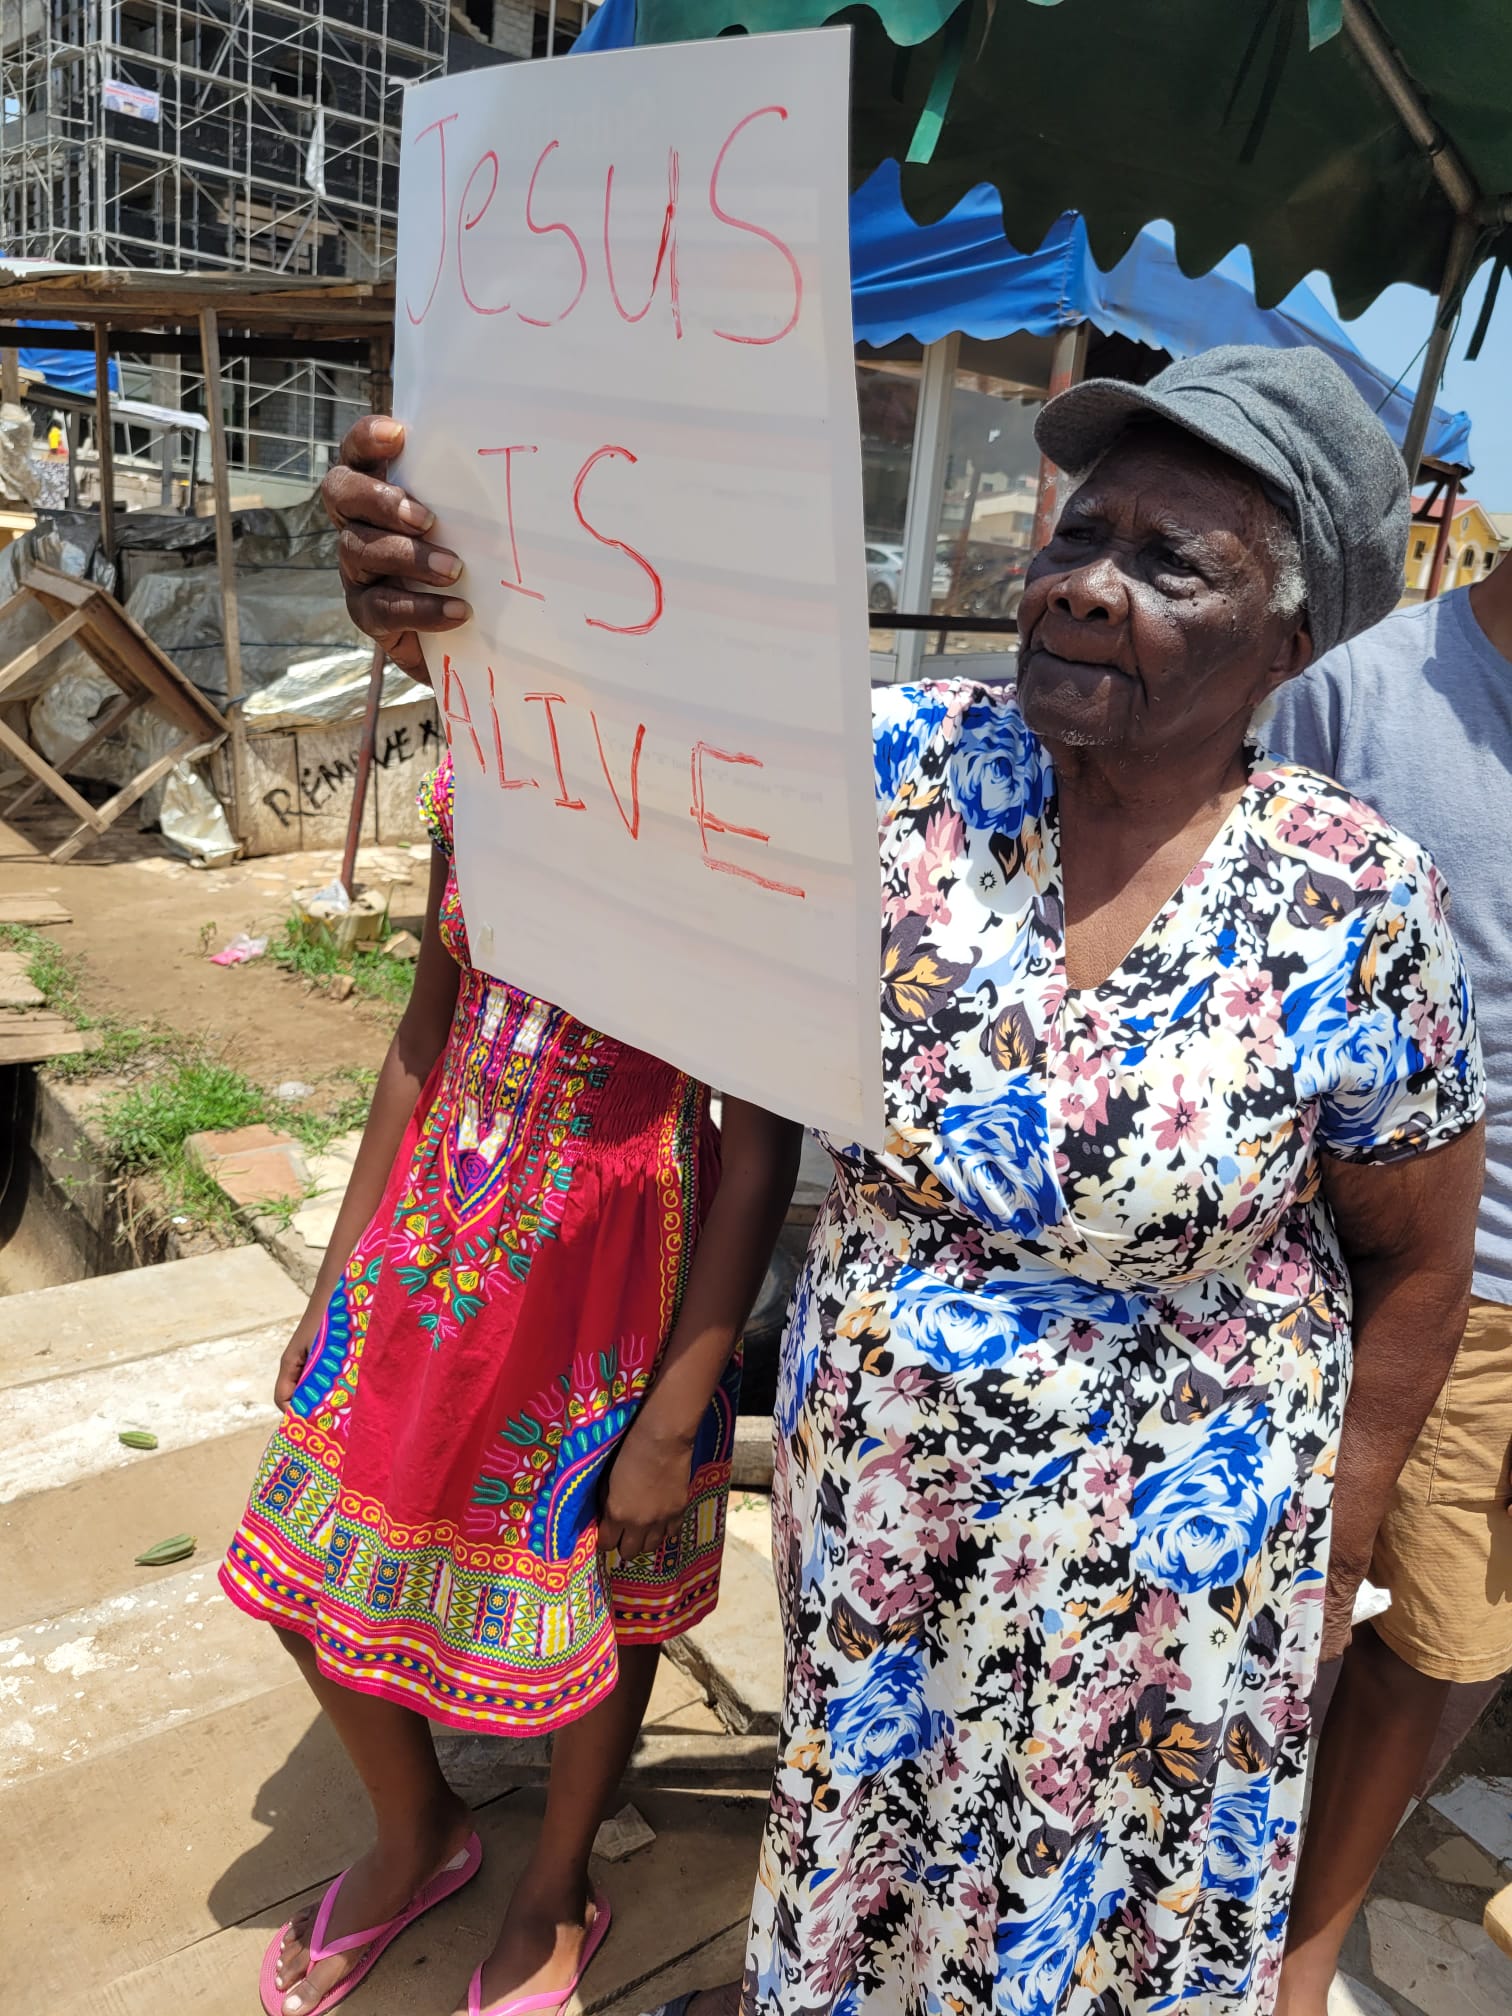 Jesus
IS
ALIVE
REMOVE X